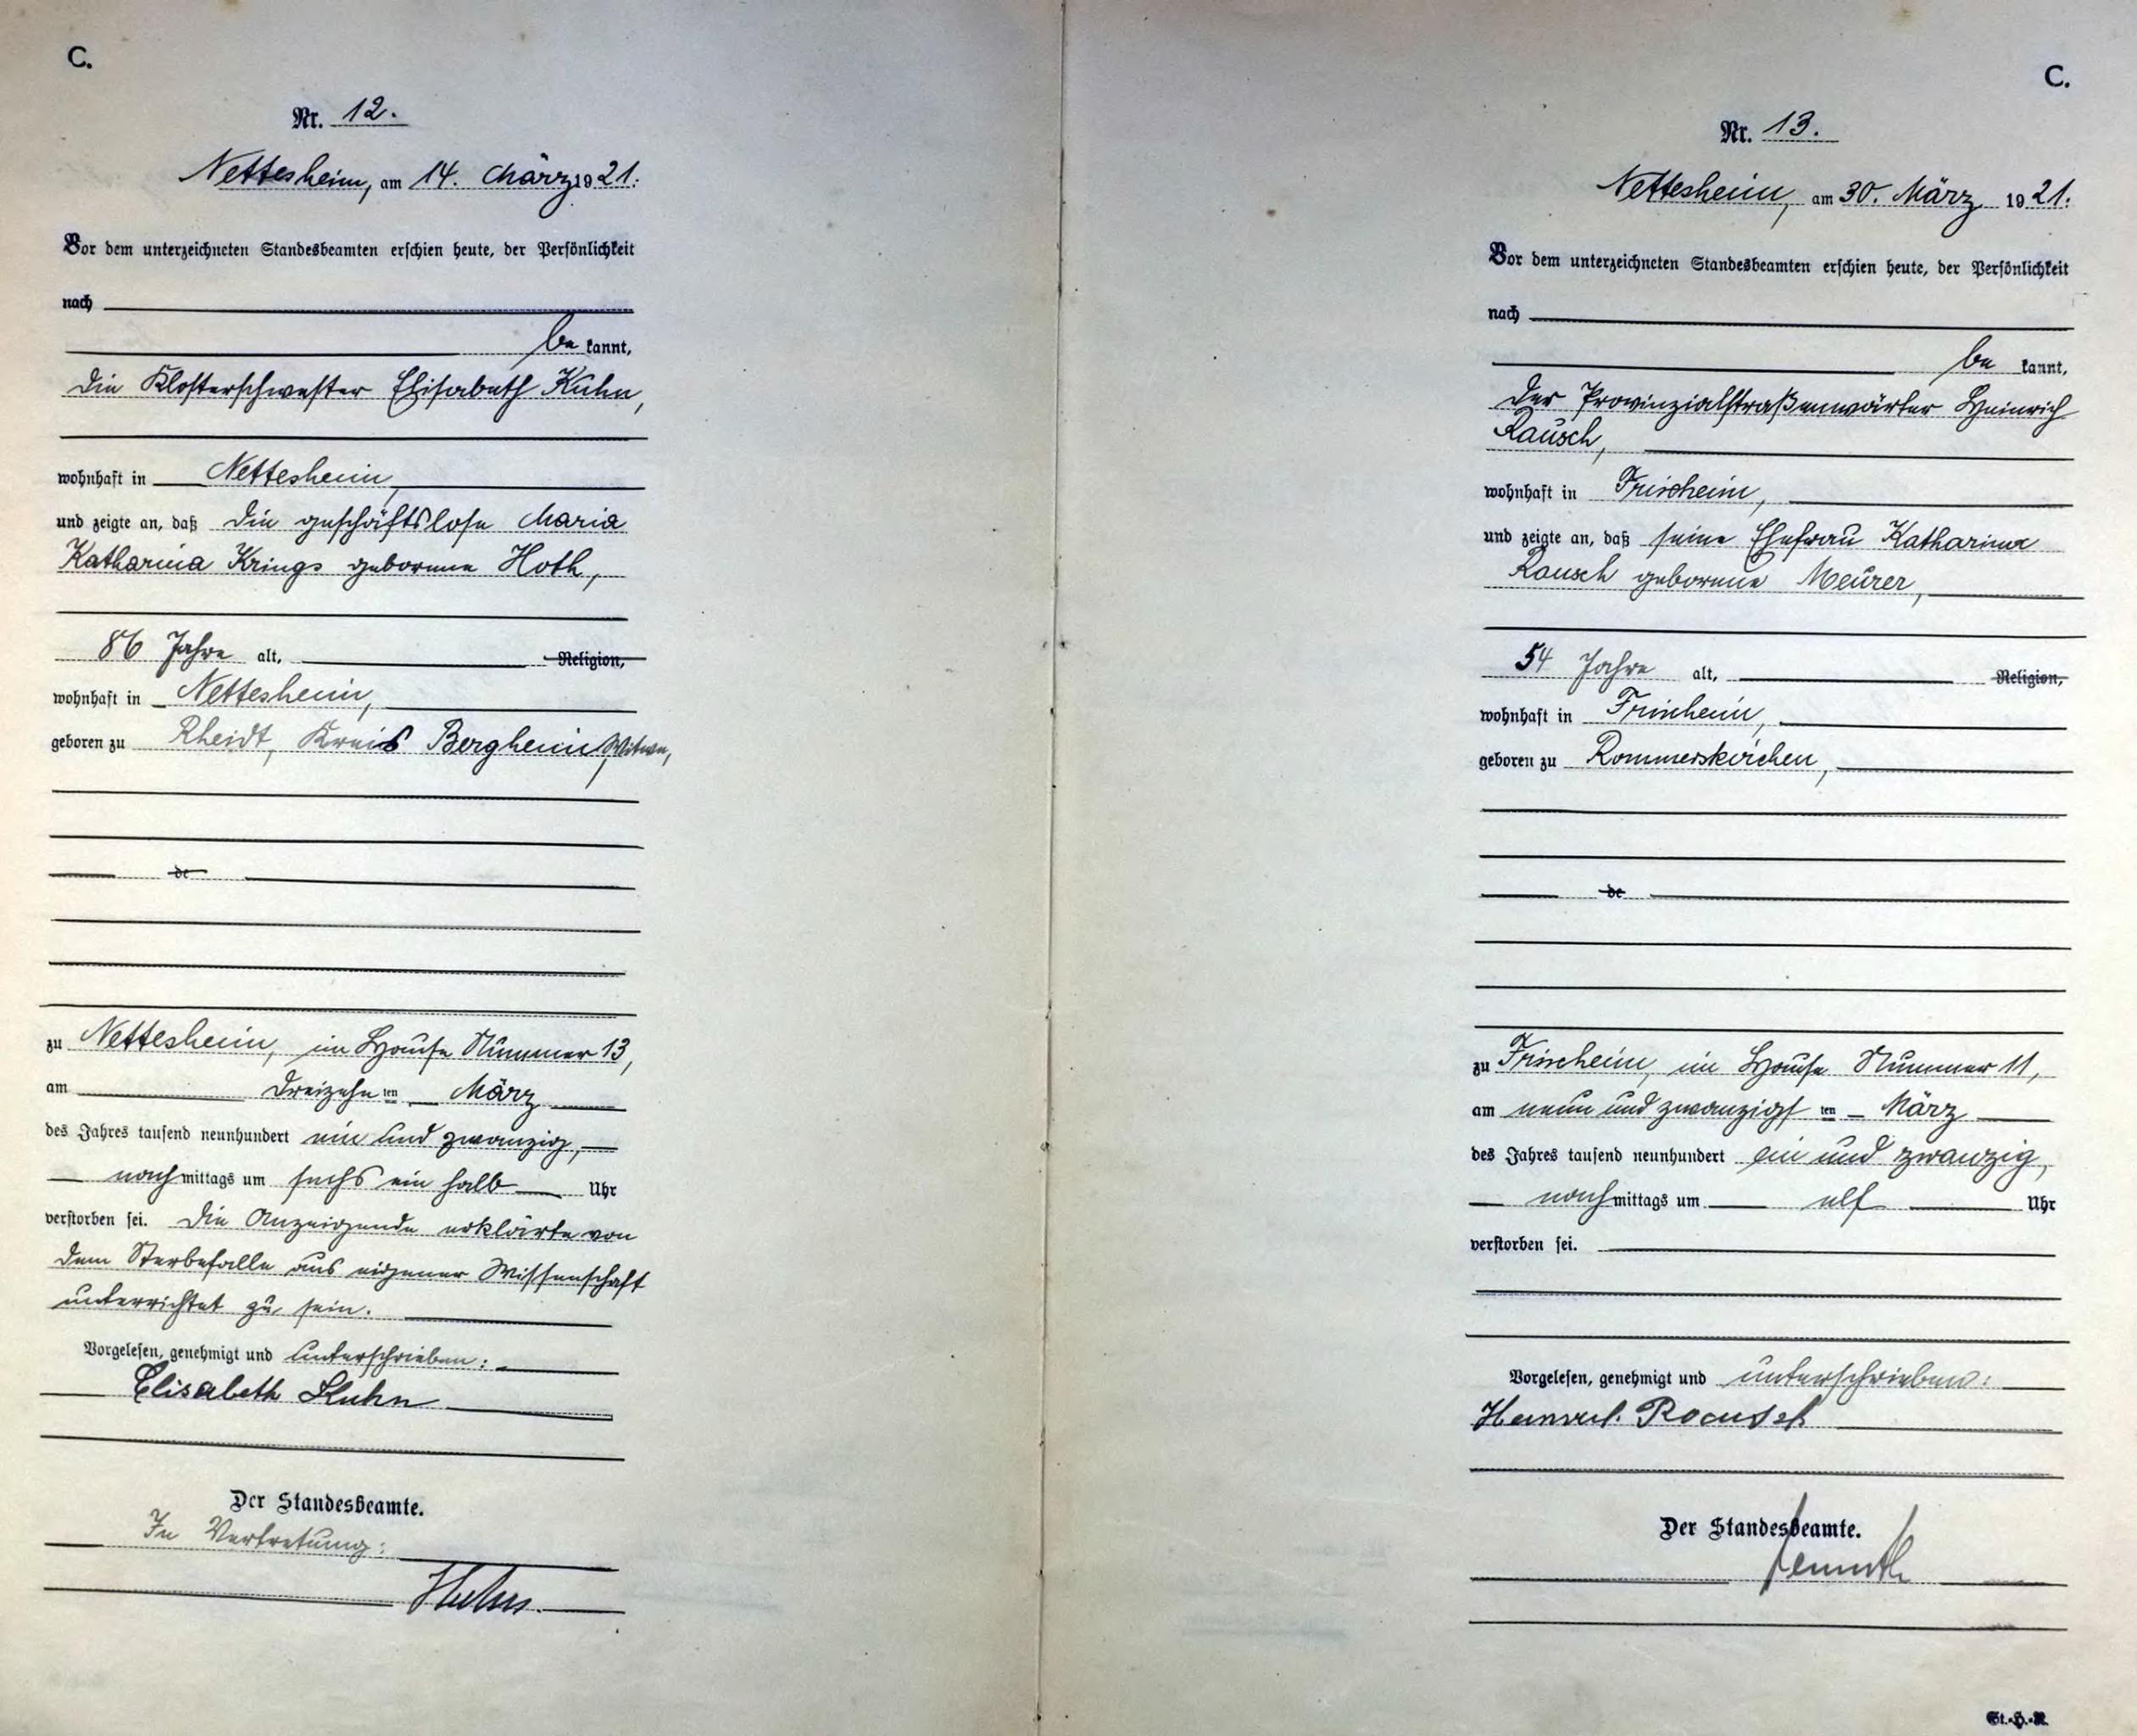 C.
Nr. 12.
Nettesheim, am 14. März 1921.
Vor dem unterzeichneten Standesbeamten erschien heute, der Persönlichkeit
nach
be kannt,
die Klosterschwester Elisabeth Kuhn,
wohnhaft in Nettesheim,
und zeigte an, daß die geschäftslose Maria
Katharina Krings geborene Hoth,
86 Jahre alt, Religion,
wohnhaft in Nettesheim,
geboren zu Rheidt, Kreis Bergheim, Witwe,
de
zu Nettesheim, im Hause Nummer 13,
am dreizehn ten März
des Jahres tausend neunhundert ein und zwanzig,
nachmittags um sechs ein halb Uhr
verstorben sei. Die Anzeigende erklärte von
dem Sterbefalle aus eigener Wissenschaft
unterrichtet zu sein.
Vorgelesen, genehmigt und unterschrieben:
Elisabeth Kuhn
Der Standesbeamte.
In Vertretung:
C.
Nr. 13.
Nettesheim, am 30. März 1921.
Vor dem unterzeichneten Standesbeamten erschien heute, der Persönlichkeit
nach
be kannt,
der Provinzialstraßenwärter Heinrich
Rausch,
wohnhaft in Frixheim,
und zeigte an, daß seine Ehefrau Katharina
Rausch geborene Meurer,
54 Jahre alt, Religion,
wohnhaft in Frixheim,
geboren zu Rommerskirchen,
de
zu Frixheim, im Hause Nummer 11,
am neun und zwanzigst ten März
des Jahres tausend neunhundert ein und zwanzig,
nachmittags um elf Uhr
verstorben sei.
Vorgelesen, genehmigt und unterschrieben:
Heinrich Rausch
Der Standesbeamte.
St.-H.-R.